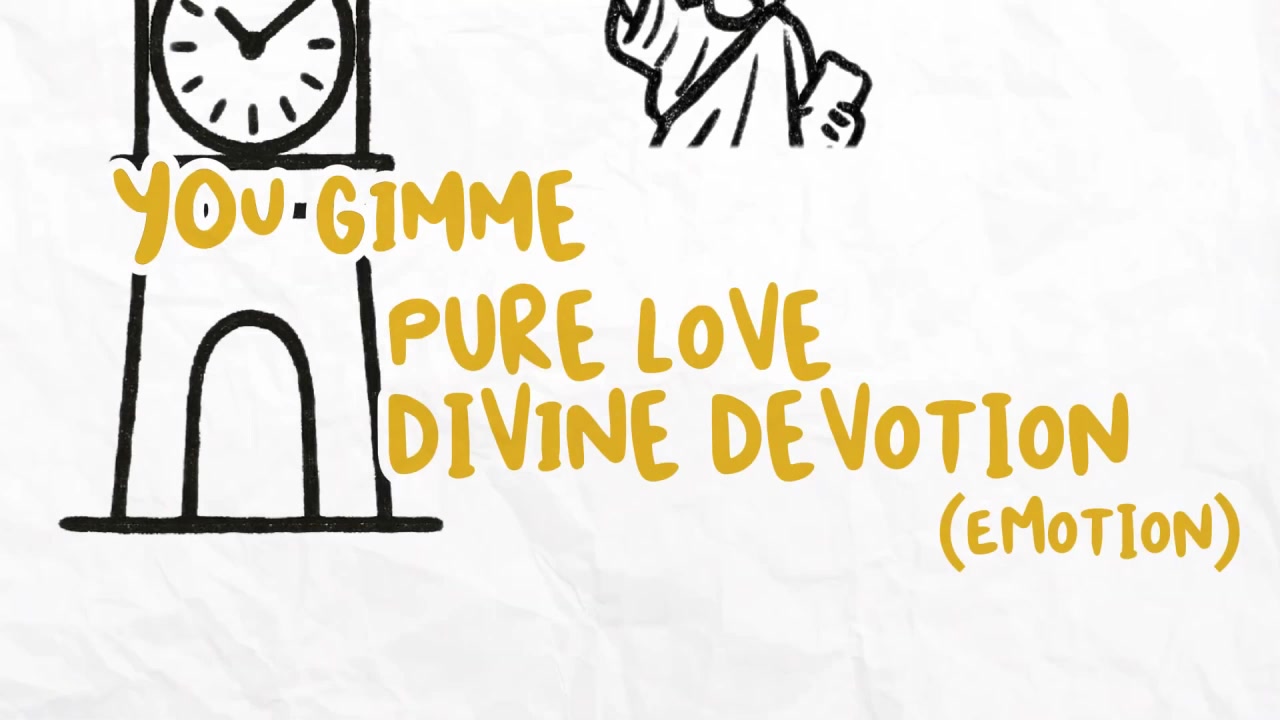 YOU GIMME
PURE LOVE
DIVINE DEVOTION
(EMOTION)